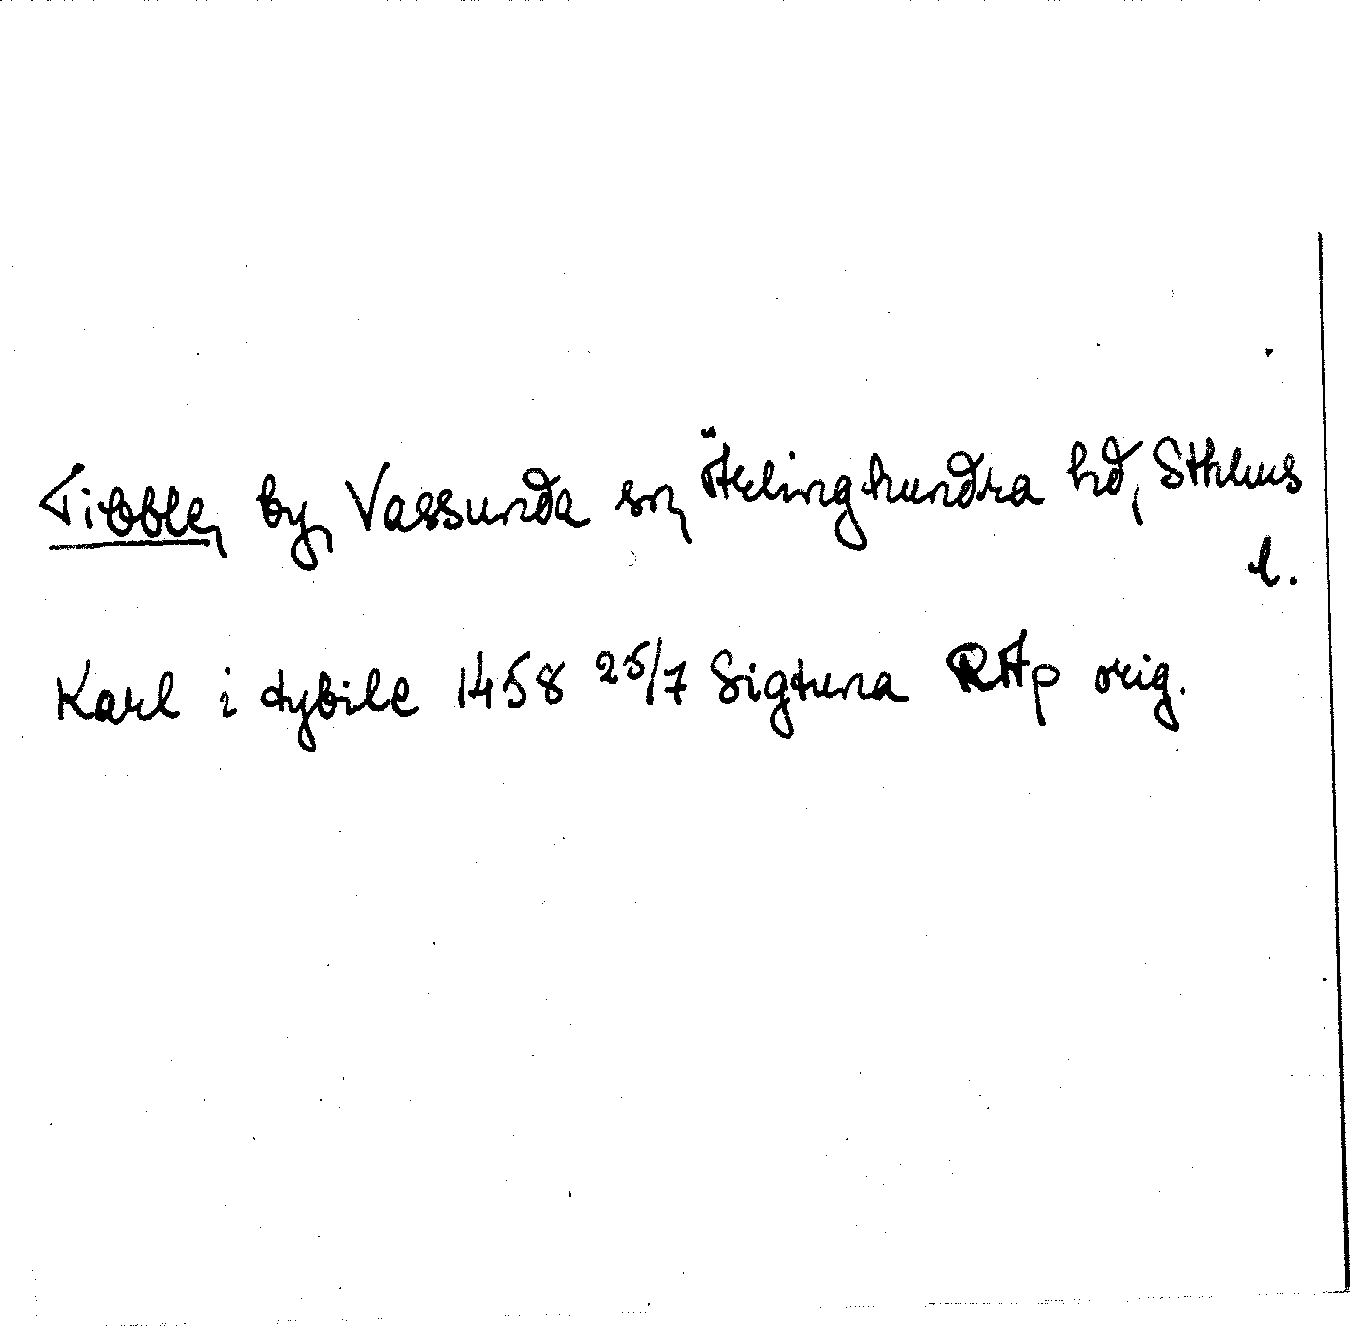 Tibble, by, Vassunda sn, Ärlinghundra hd, Sthlms
l.
Karl i tybile 1458 25/7 Sigtuna RAp orig.